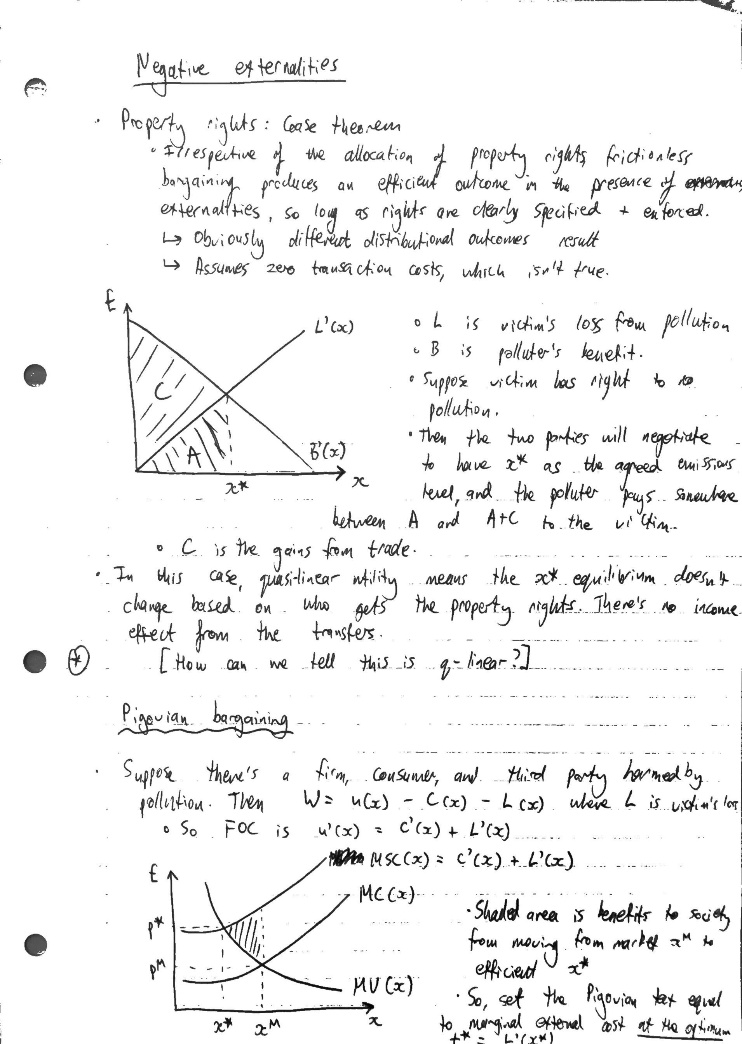 Negative externalities
· Property rights: Coase theorem
∘ Irrespective of the allocation of property rights, frictionless
bargaining produces an efficient outcome in the presence of
externalities, so long as rights are clearly specified + enforced.
↳ Obviously different distributional outcomes result
↳ Assumes zero transaction costs, which isn't true.
£
L'(x)
C
A
B'(x)
x*
x
∘ L is victim's loss from pollution
∘ B is polluter's benefit.
∘ Suppose victim has right to no
pollution.
· Then the two parties will negotiate
to have x* as the agreed emissions
level, and the polluter pays somewhere
between A and A+C to the victim.
∘ C is the gains from trade.
· In this case, quasilinear utility means the x* equilibrium doesn't
change based on who gets the property rights. There's no income
effect from the transfers.
* [How can we tell this is q-linear?]
Pigovian bargaining
· Suppose there's a firm, consumer, and third party harmed by
pollution. Then W = u(x) - C(x) - L(x) where L is victim's loss
∘ So FOC is u'(x) = C'(x) + L'(x)
£
MSC(x) = C'(x) + L'(x)
MC(x)
p*
pᴹ
MU(x)
x*
xᴹ
x
· Shaded area is benefits to society
from moving from market xᴹ to
efficient x*
· So, set the Pigovian tax equal
to marginal external cost at the optimum
t* = L'(x*)